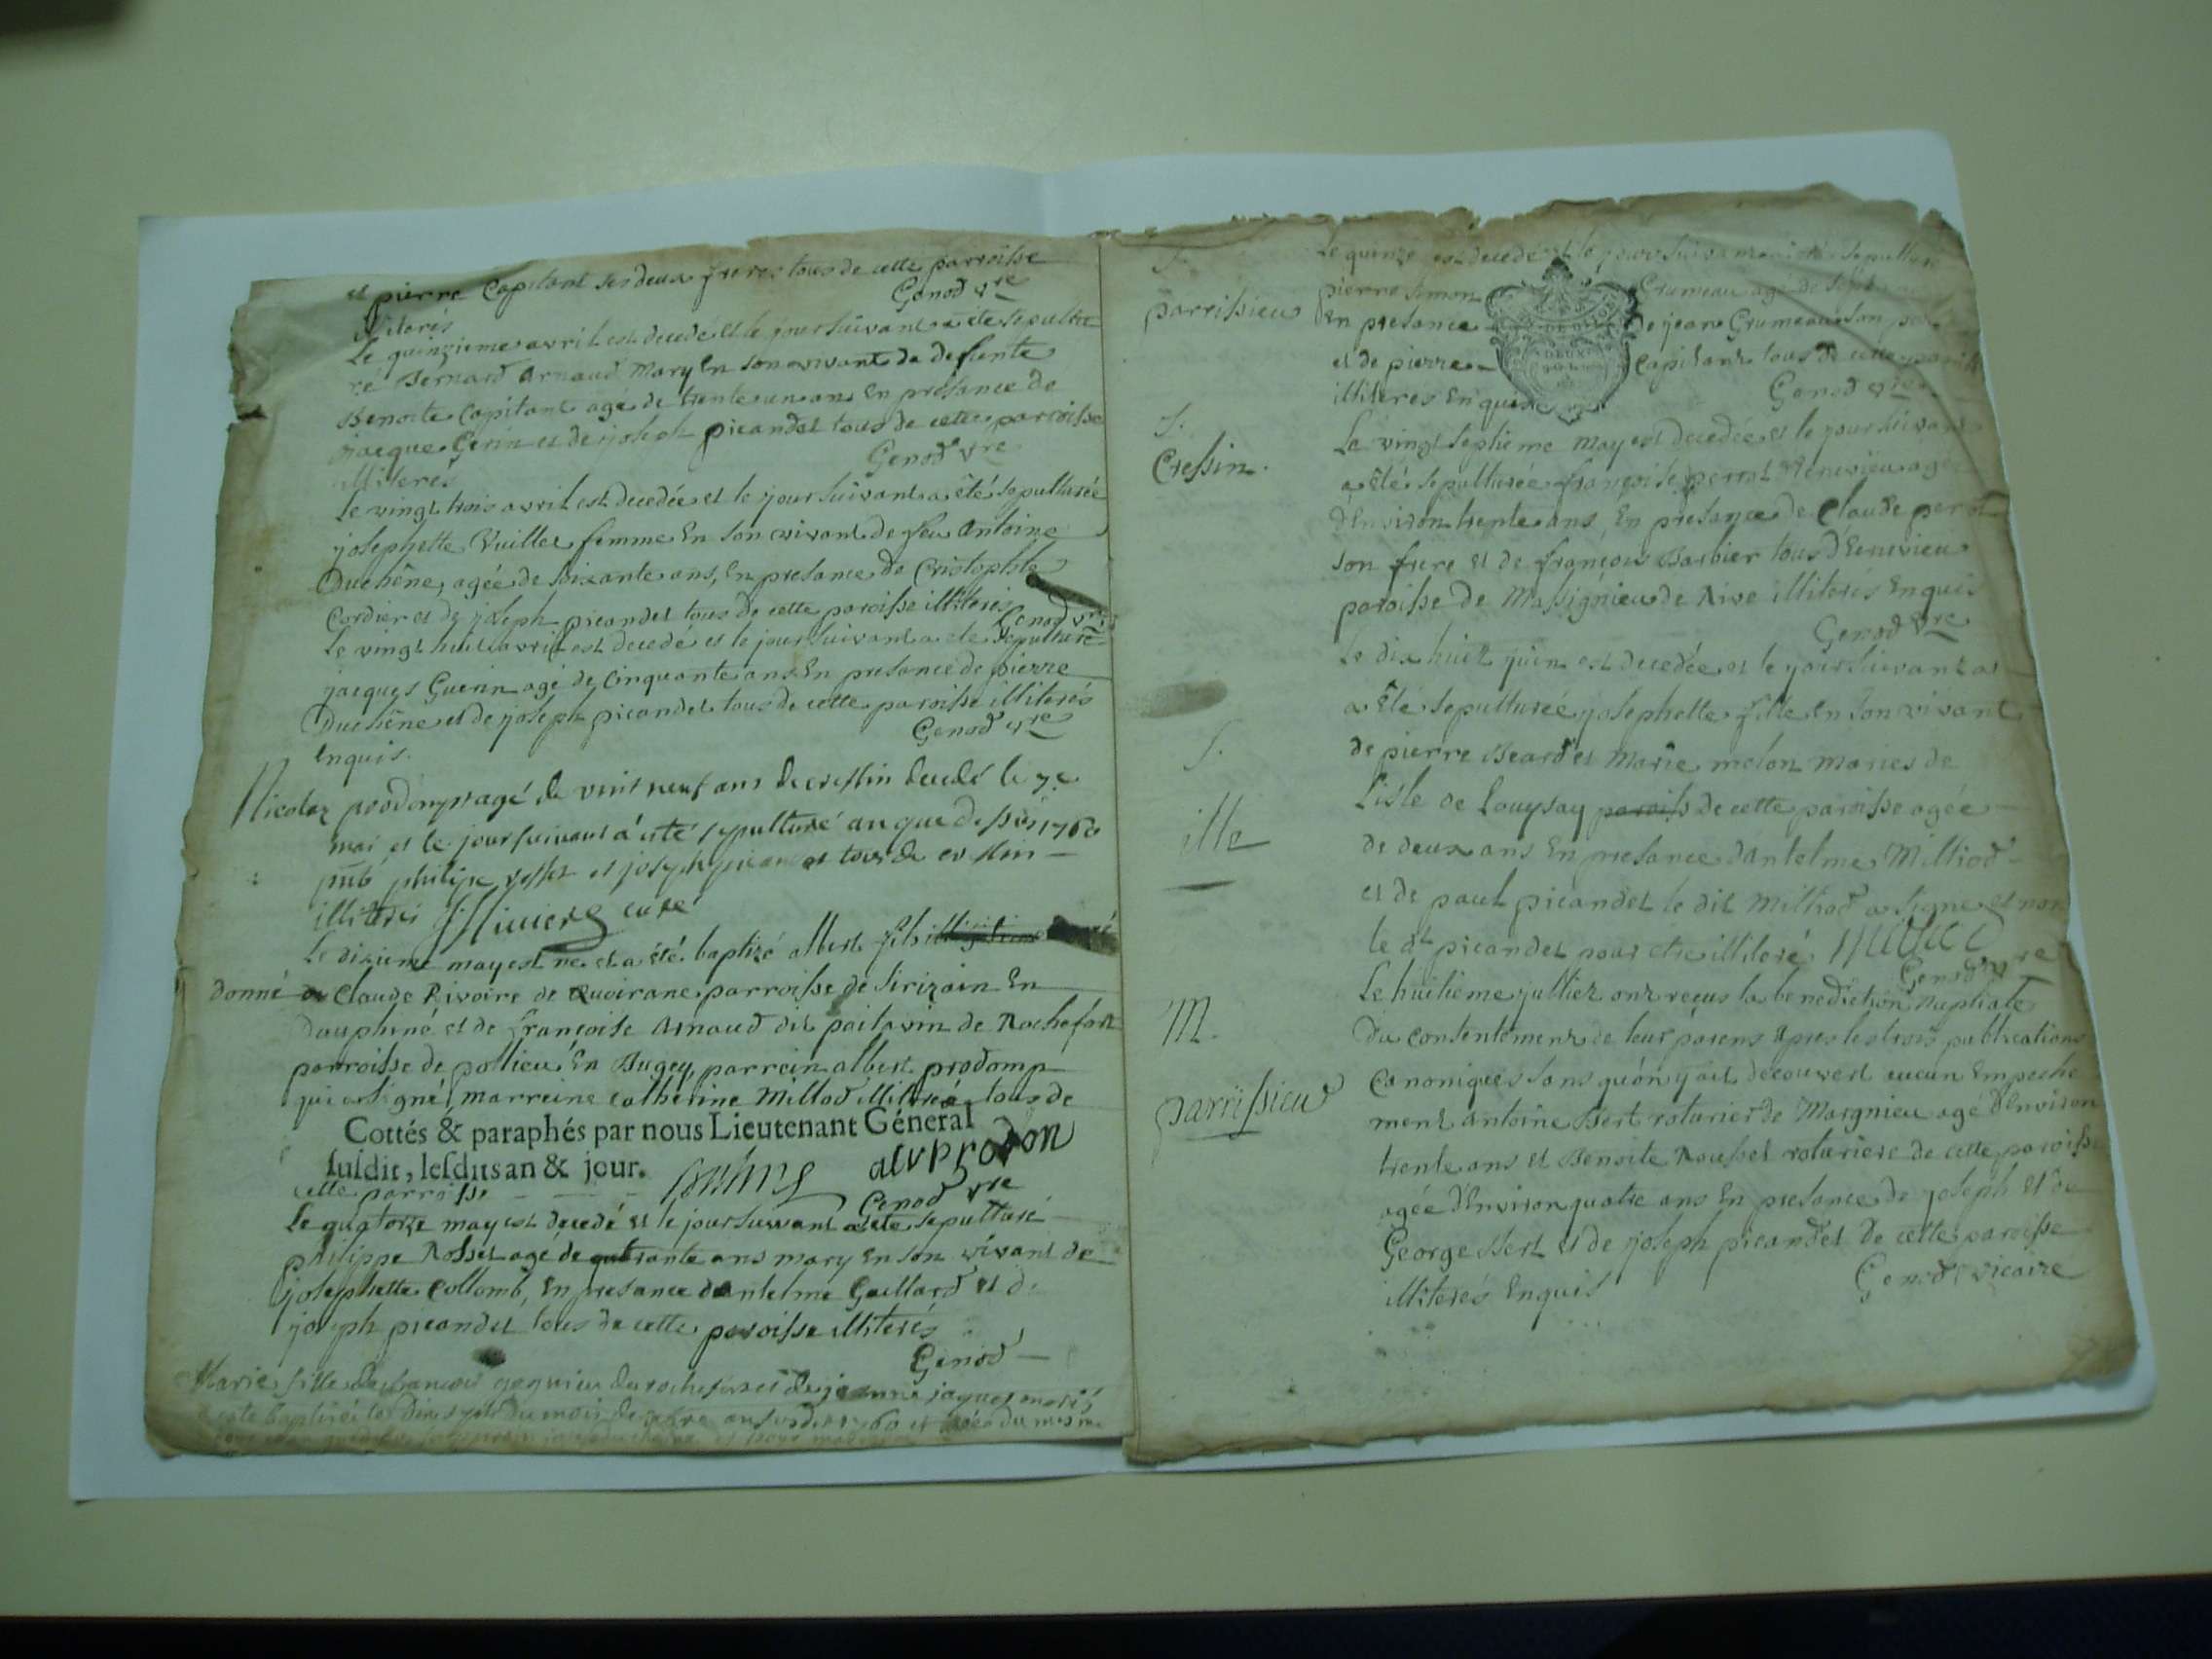 et pierre Capitant ses deux freres tous de cette parroisse
illiterés Genod vre
Le quinzieme avril est decedé et le jour suivant a été sepultu
ré Bernard Arnaud Mary En son vivant de defunte
Benoite Capitant agé de trente un ans En presance de
jacque Gerin et de joseph picandet tous de cette paroisse
illiterés Genod vre
Le vingt trois avril est decedée et le jour suivant a été sepulturée
josephette Vuillet femme En son vivant de feu Antoine
Duchêne, agée de soixante ans, En presance de Cristophle
Cordier et de joseph picandet tous de cette paroisse illiterés
Genod vre
Le vingt huit avril est decedé et le jour suivant a été Sepulturé
jacques Guerin agé de Cinquante ans En presance de pierre
Duchêne et de joseph picandet tous de cette paroisse illiterés
enquis. Genod vre
Nicolas agé de vint neuf ans de cressin decedé le 7e
mai et le jour suivant a été sepulturé 1760
philipe et joseph picandet tous de cressin
illiterés curé
Le dixieme may est né et a été baptizé albert fils
donné a Claude Rivoire de parroisse de En
Dauphiné et de françoise Arnaud dit poitavin de Rochefort
parroisse de pollieu En Bugey, parrein albert prodomp
qui a signé, marreine catherine Milliod illiterée tous de
Cottés & paraphés par nous Lieutenant Géneral
susdit, lesdits an & jour.
alvprodon
cette parroisse Genod vre
Le quatorze may est decedé et le jour suivant a été sepulturé
philippe Rosset agé de quarante ans mary En son vivant de
josephette Collomb, En presance dantelme Gaillard et de
joseph picandet tous de cette paroisse illiterés
Genod
Marie fille de francois de rochefort et de jeanne mariés
a été baptisée le du mois de
S.
parrissieu
Le quinze est decedé et le jour suivant a été sepulturé
pierre simon Crumeau agé de sept
En presance de jean Grumeau son pere
et de pierre Capitant tous de cette paroisse
illiteres Enquis Genod vre
S.
Cressin.
Le vingt septieme May est decedée et le jour suivant
a été sepulturée françoise perrot agée
d'Environ trente ans, En presance de Claude perrot
son frere et de françois Barbier tous
paroisse de Massignieu de Rive illiterés Enquis
Genod vre
S.
ille
Le dix huit juin est decedée et le jour suivant a
a été sepulturée josephette fille En son vivant
de pierre Beard et Marie molon maries de
Lisle de Louysay parois de cette paroisse agée
de deux ans En presance dantelme Milliod
et de paul picandet le dit Milliod a signé et non
le dt picandet pour etre illiteré
Genod vre
M.
parrissieu
Le huitieme julliet ont reçus la benediction nuptiale
du consentement de leur parens Apres les trois publications
Canoniques sans qu'on y ait decouvert aucun Empeche
ment antoine Bert roturier de Margnieu agé d'Environ
trente ans et Benoite Rousset roturiere de cette paroisse
agée d'Environ quatre ans En presance de joseph et de
George Bert et de joseph picandet de cette paroisse
illiterés Enquis Genod vicaire